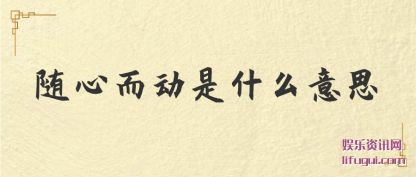 随心而动是什么意思
娱乐资讯网
lifugui.com